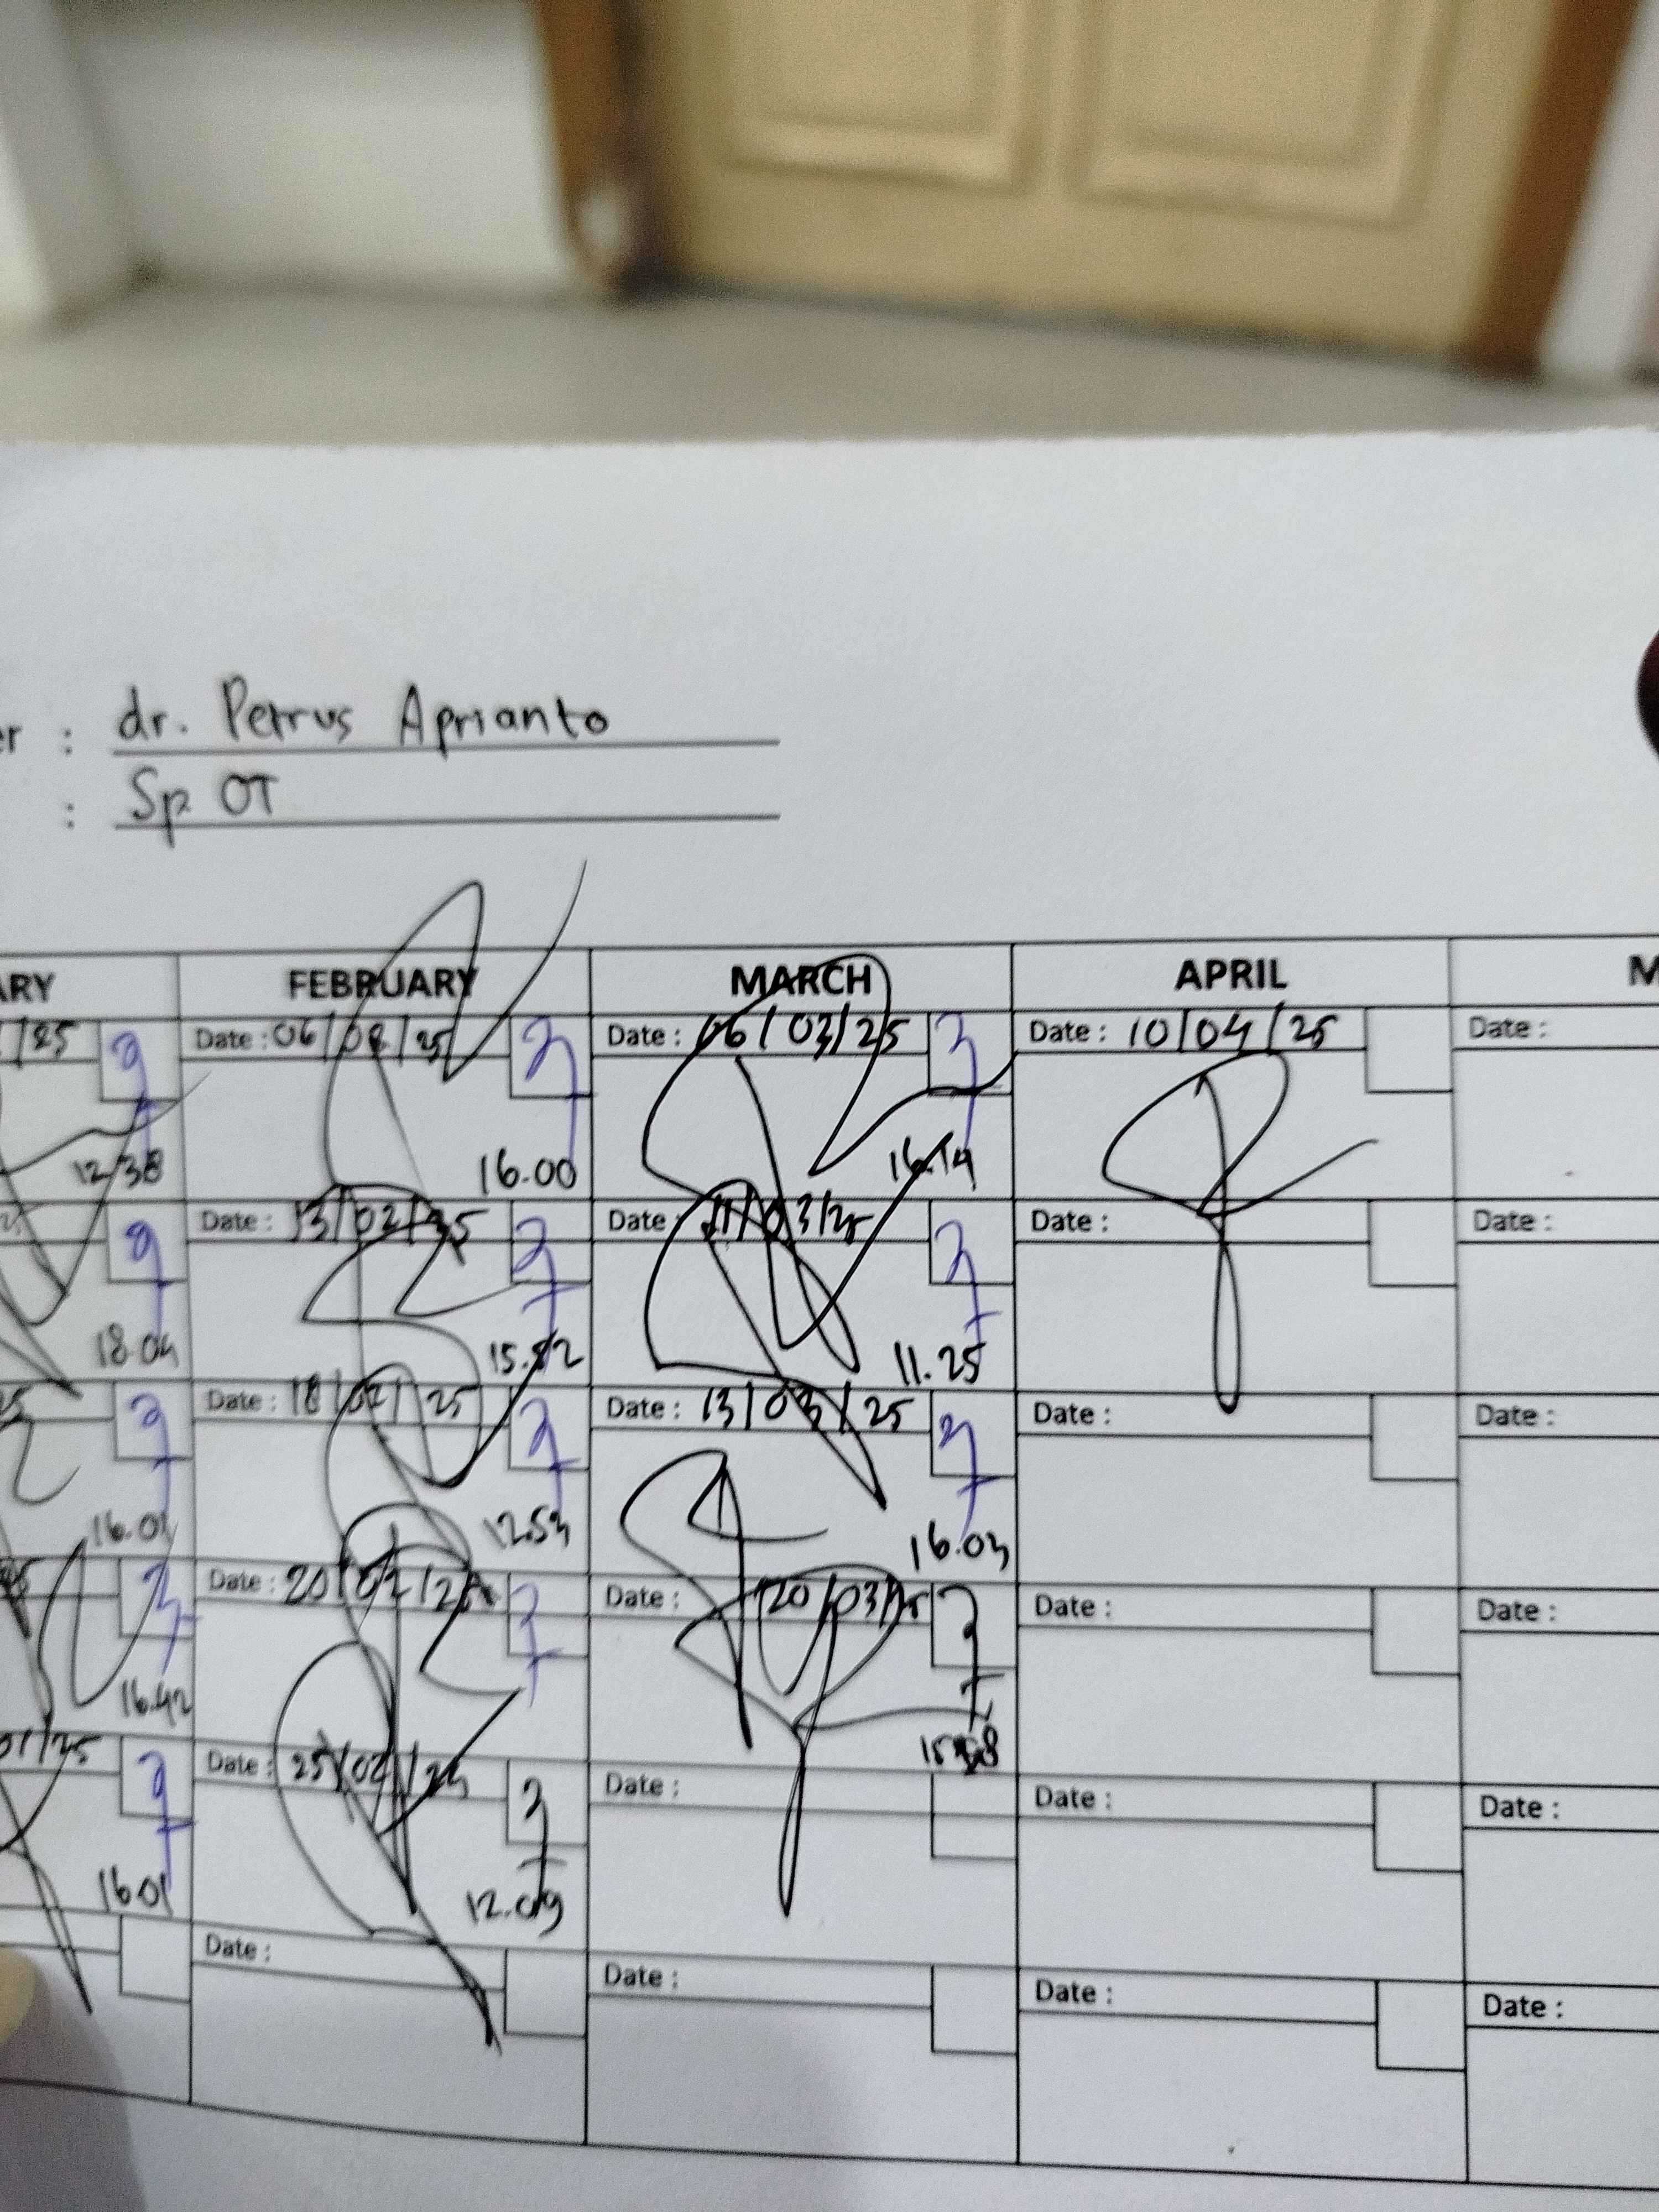 er : dr. Petrus Aprianto
: Sp OT
ARY FEBRUARY MARCH APRIL M
/25 Date : 06/02/25 Date : 06/03/25 Date : 10/04/25 Date :
12.38 16.00 16.14
Date : 13/02/25 Date : 11/03/25 Date : Date :
18.04 15.52 11.25
25 Date : 18/02/25 Date : 13/03/25 Date : Date :
16.01 12.54 16.03
Date : 20/02/25 Date : 20/03/25 Date : Date :
16.42
01/25 Date : 25/02/25 Date : Date : Date :
16.01 12.09
Date : Date : Date : Date :